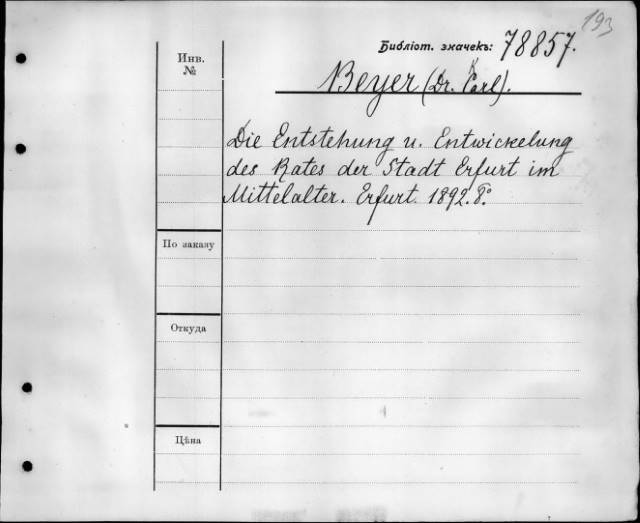 193
Библіот. значекъ: 78857.
Инв.
№
Beyer (Dr. Carl).
Die Entstehung u. Entwickelung
des Rates der Stadt Erfurt im
Mittelalter. Erfurt 1892. 8º.
По заказу
Откуда
Цѣна